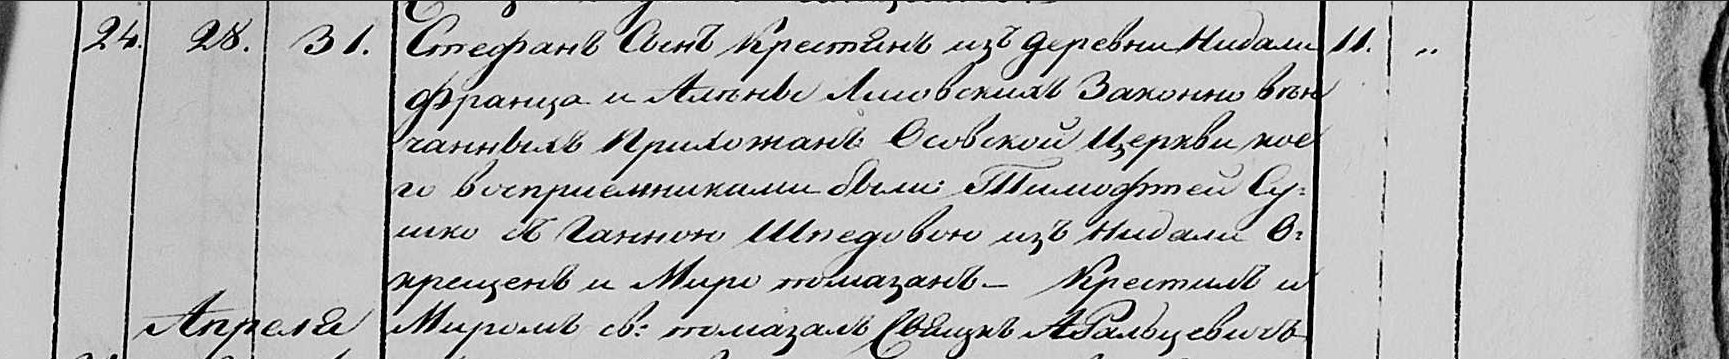 24. 28. 31. Стефанъ Сынъ Крестянъ изъ деревни Нидали 11. „
Франца и Алены Лисовскихъ Законно вѣн
чанныхъ Прихожанъ Осовской Церкви кое
го восприемниками были: Тимофтей Су=
шко съ Ганною Шпедовою изъ Нидали О=
крещенъ и Миро помазанъ – Крестилъ и
Апреля Миромъ св: помазалъ Свящкъ